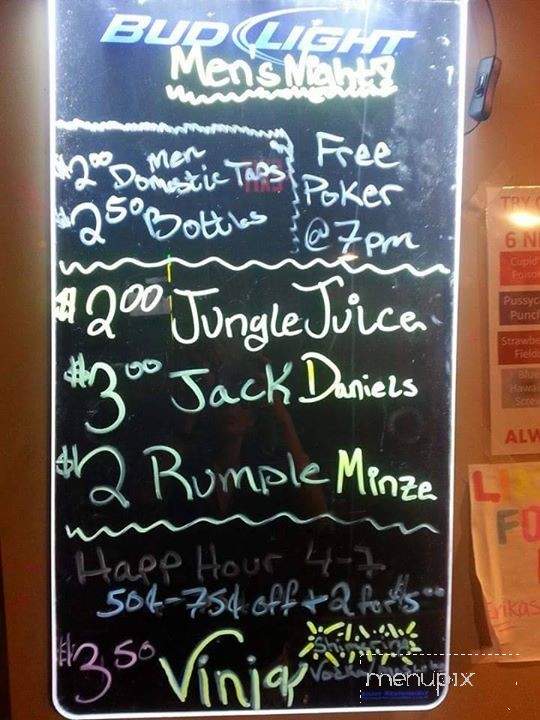 BUD LIGHT
Men's Night!
$2.00 Men Domestic Taps
$2.50 Bottles
Free
Poker
@ 7pm
$2.00 Jungle Juice
$3.00 Jack Daniels
$2 Rumple Minze
Happ Hour 4-7
50¢-75¢ off + 2 for $5.00
$3.50 Vinja
menupix
TRY
6
Cupid'
Poison
Pussyc
Punch
Strawbe
Fields
Blue
Hawa
Screw
ALW
Erikas